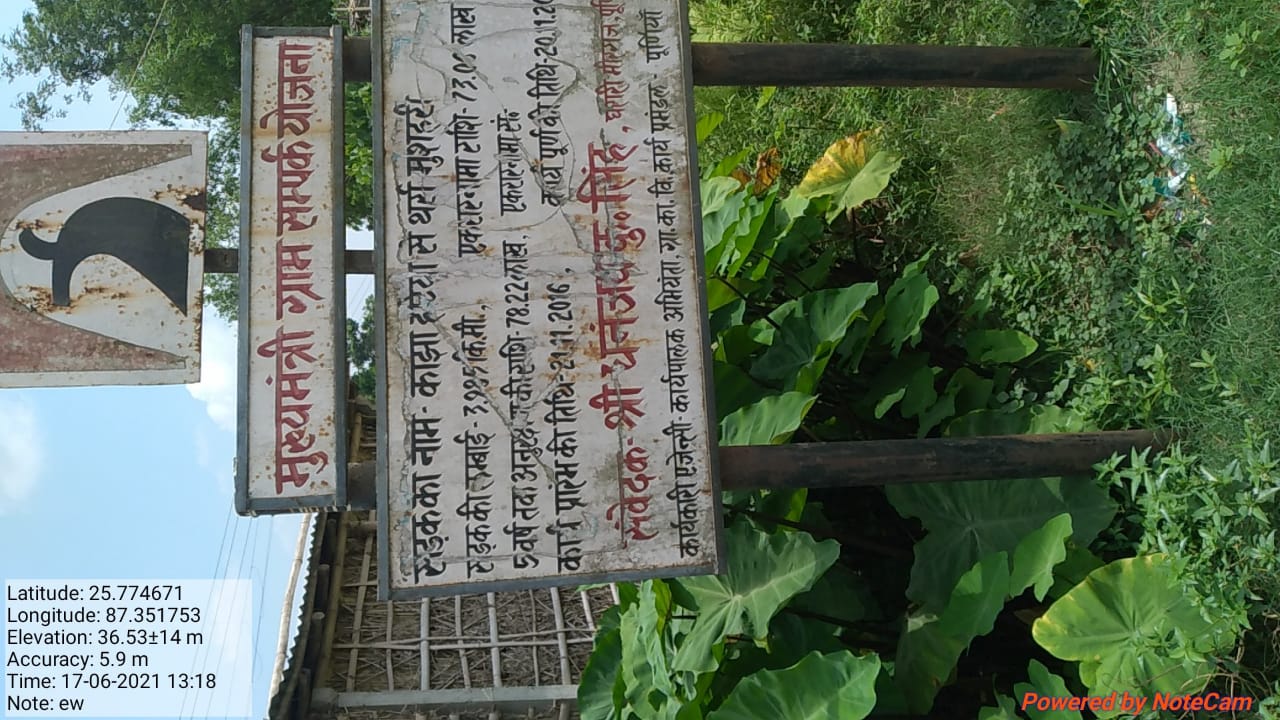 मुख्यमंत्री ग्राम सम्पर्क योजना
सड़क का नाम- काझा
सड़क की लम्बाई- कि.मी., एकरारनामा राशि- 73.0 लाख
5 वर्ष तक राशि- 78.22 लाख, एकरारनामा सं०
कार्य प्रारम्भ की तिथि- 21.11.2016, कार्य पूर्ण की तिथि- 20.11.20
संवेदक- श्री धनंजय कु० सिंह,
कार्यकारी एजेन्सी- कार्यपालक अभियंता, ग्रा. का. वि. कार्य प्रमंडल- पूर्णियाँ
Latitude: 25.774671
Longitude: 87.351753
Elevation: 36.53±14 m
Accuracy: 5.9 m
Time: 17-06-2021 13:18
Note: ew
Powered by NoteCam